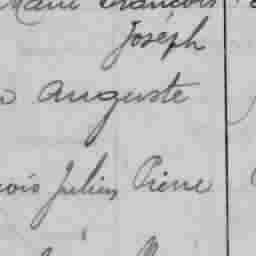 Marie François
Joseph
Auguste
çois Julien Pierre